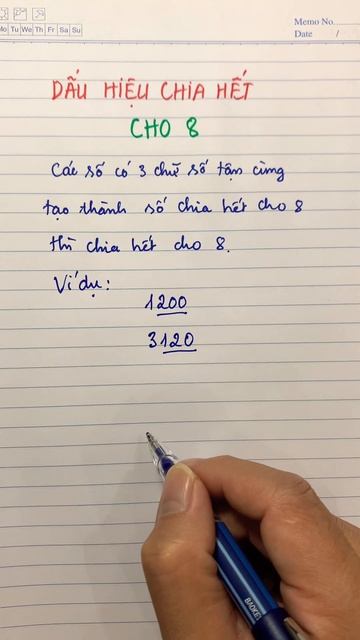 Memo No.
Mo Tu We Th Fr Sa Su
Date /
DẤU HIỆU CHIA HẾT
CHO 8
Các số có 3 chữ số tận cùng
tạo thành số chia hết cho 8
thì chia hết cho 8.
Ví dụ:
1200
3120